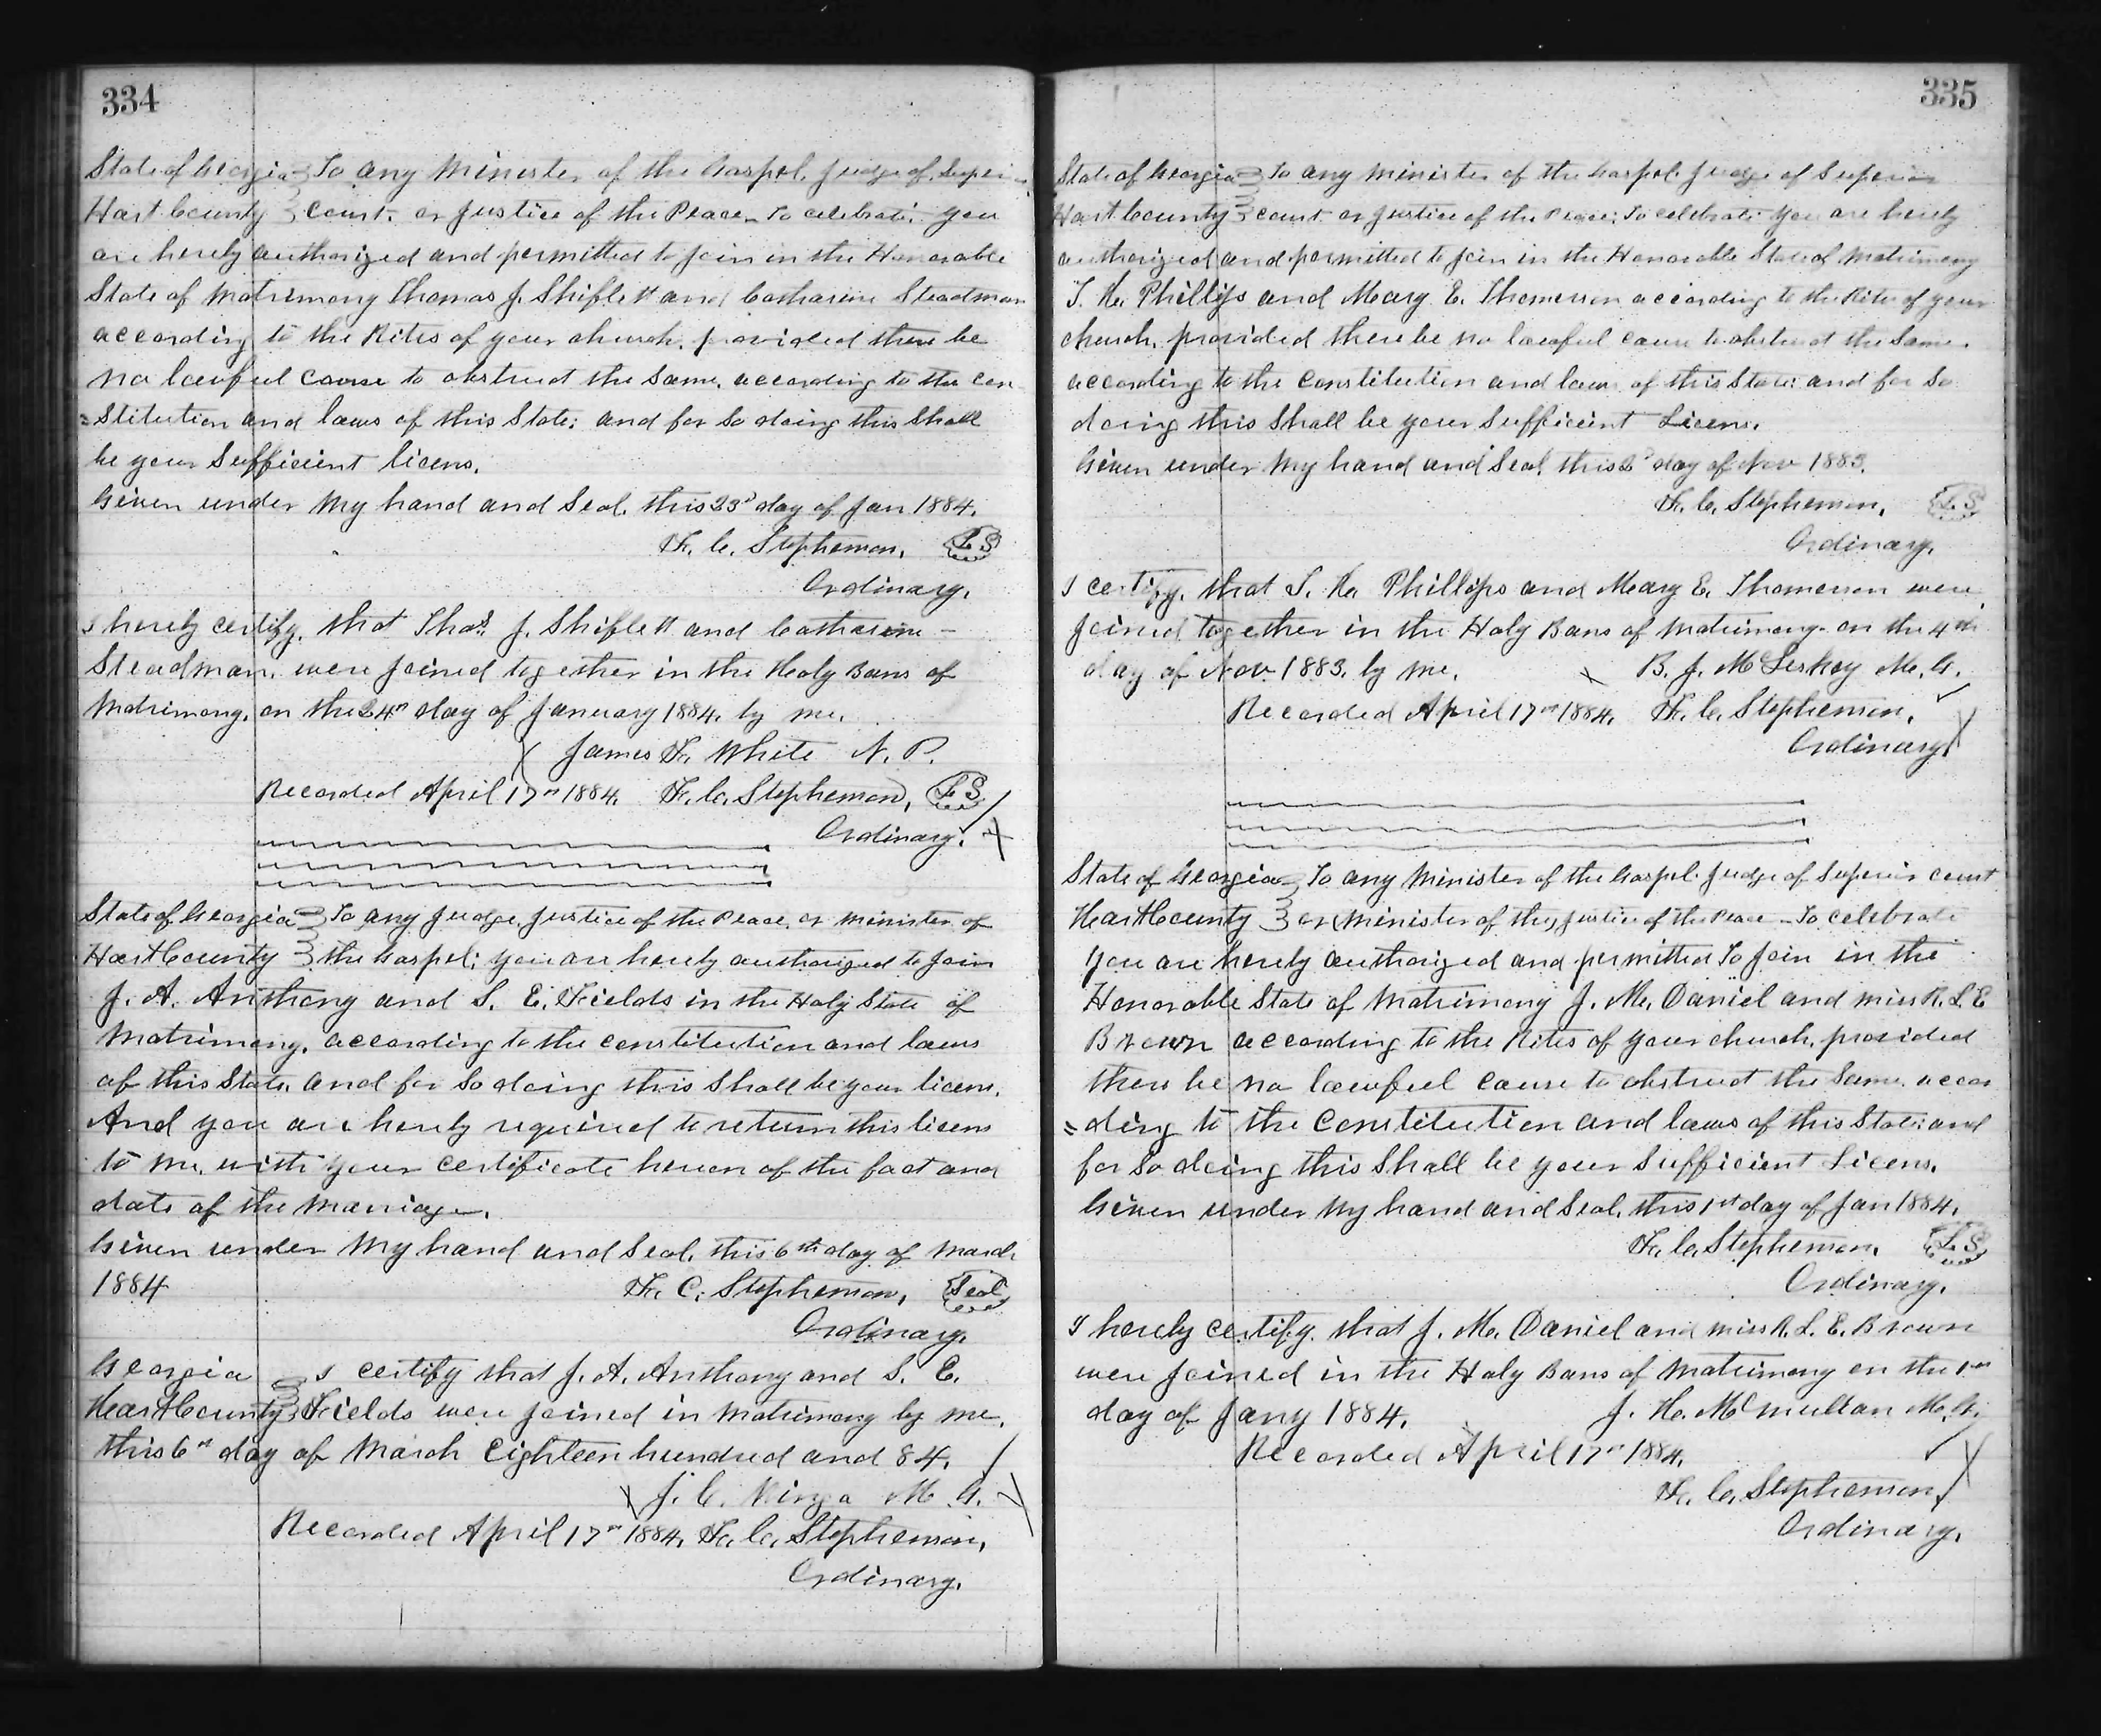 334
State of Georgia } To any Minister of the Gospel, Judge of Superior
Hart County } Court, or Justice of the Peace, To celebrate: you
are hereby authorized and permitted to join in the Honorable
State of Matrimony Thomas J. Shiflett and Catharine Steadman
according to the Rites of your church, provided there be
no lawful cause to obstruct the same, according to the con
=stitution and laws of this State; and for so doing this shall
be your sufficient licens.
Given under my hand and seal, this 23d day of Jan 1884.
F. C. Stephenson, LS
Ordinary.
I hereby certify, that Thos. J. Shiflett and Catharine -
Steadman, were joined together in the Holy Bans of
Matrimony, on the 24th day of January 1884, by me.
James F. White N. P.
Recorded April 17th 1884. F. C. Stephenson, LS
Ordinary.
State of Georgia } To any Judge, Justice of the Peace, or Minister of
Hart County } the Gospel; you are hereby authorized to join
J. A. Anthony and S. E. Fields in the Holy State of
Matrimony, according to the constitution and laws
of this State, and for so doing this shall be your licens.
And you are hereby required to return this licens
to me, with your certificate hereon of the fact and
date of the marriage.
Given under my hand and seal, this 6th day of March
1884 F. C. Stephenson, Seal
Ordinary.
Georgia } I certify that J. A. Anthony and S. E.
Hart County } Fields were joined in Matrimony by me,
this 6th day of March Eighteen hundred and 84.
J. C. M. G.
Recorded April 17th 1884, F. C. Stephenson,
Ordinary.
335
State of Georgia } To any Minister of the Gospel, Judge of Superior
Hart County } court or Justice of the Peace; To celebrate: you are hereby
authorized and permitted to join in the Honorable State of Matrimony
T. H. Phillips and Mary E. Thomerson according to the Rites of your
church, provided there be no lawful cause to obstruct the same.
according to the constitution and laws of this State: and for so
doing this shall be your sufficient Licens.
Given under my hand and seal, this day of Nov 1883.
F. C. Stephenson, LS
Ordinary.
I certify, that T. H. Phillips and Mary E. Thomerson were
joined together in the Holy Bans of Matrimony on the 4th
day of Nov 1883, by me. B. J. McLeskey M. G.
Recorded April 17th 1884, F. C. Stephenson,
Ordinary.
State of Georgia } To any Minister of the Gospel, Judge of Superior court
Hart County } or (Minister of the) Justice of the Peace - To celebrate
you are hereby authorized and permitted To join in the
Honorable State of Matrimony J. M. Daniel and miss R. L. E
Brown according to the Rites of your church, provided
there be no lawful cause to obstruct the same accor
=ding to the constitution and laws of this State: and
for so doing this shall be your sufficient Licens.
Given under my hand and seal, this 1st day of Jan 1884.
F. C. Stephenson, LS
Ordinary.
I hereby certify, that J. M. Daniel and miss R. L. E. Brown
were joined in the Holy Bans of Matrimony on the 1st
day of Jany 1884. J. H. McMullan M. G.
Recorded April 17th 1884.
F. C. Stephenson,
Ordinary.